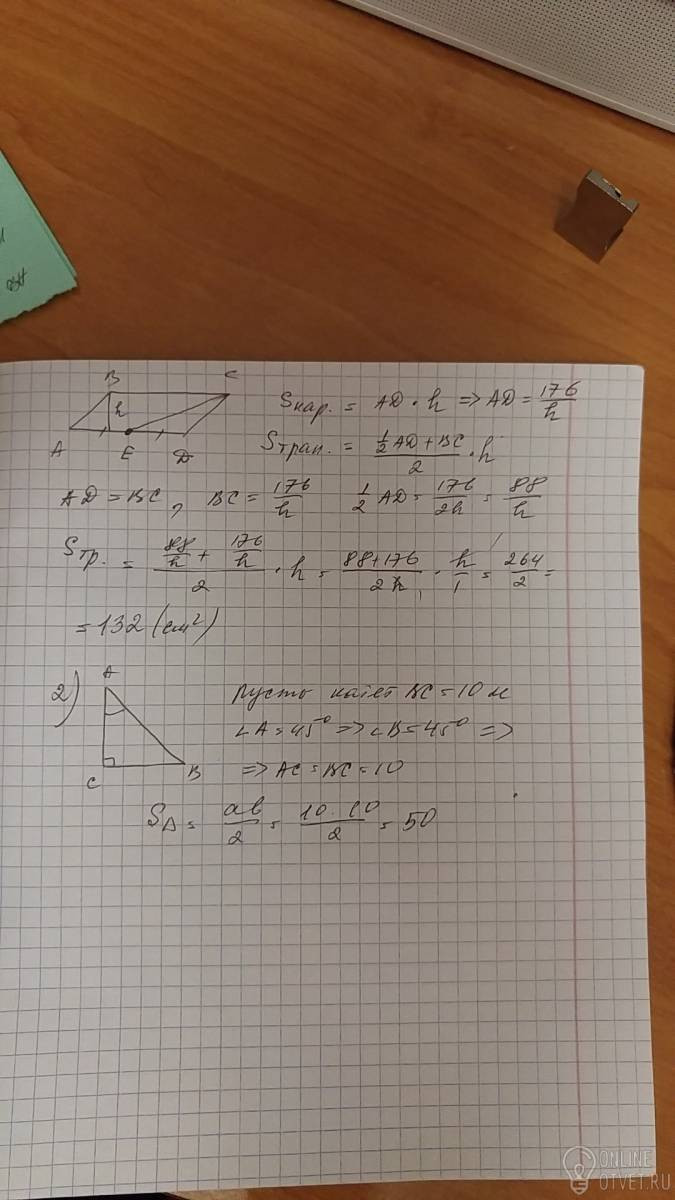 B C
h
A E D
Sпар. = AD · h => AD = 176/h
Sтрап. = (1/2 AD + BC)/2 · h
AD = BC, BC = 176/h 1/2 AD = 176/2h = 88/h
Sтр. = (88/h + 176/h)/2 · h = (88+176)/2h · h/1 = 264/2 =
= 132 (см²)
2)
A
C B
пусть катет BC = 10 м
∠A = 45° => ∠B = 45° =>
=> AC = BC = 10
S∆ = ab/2 = 10·10/2 = 50
ONLINE
OTVET.RU